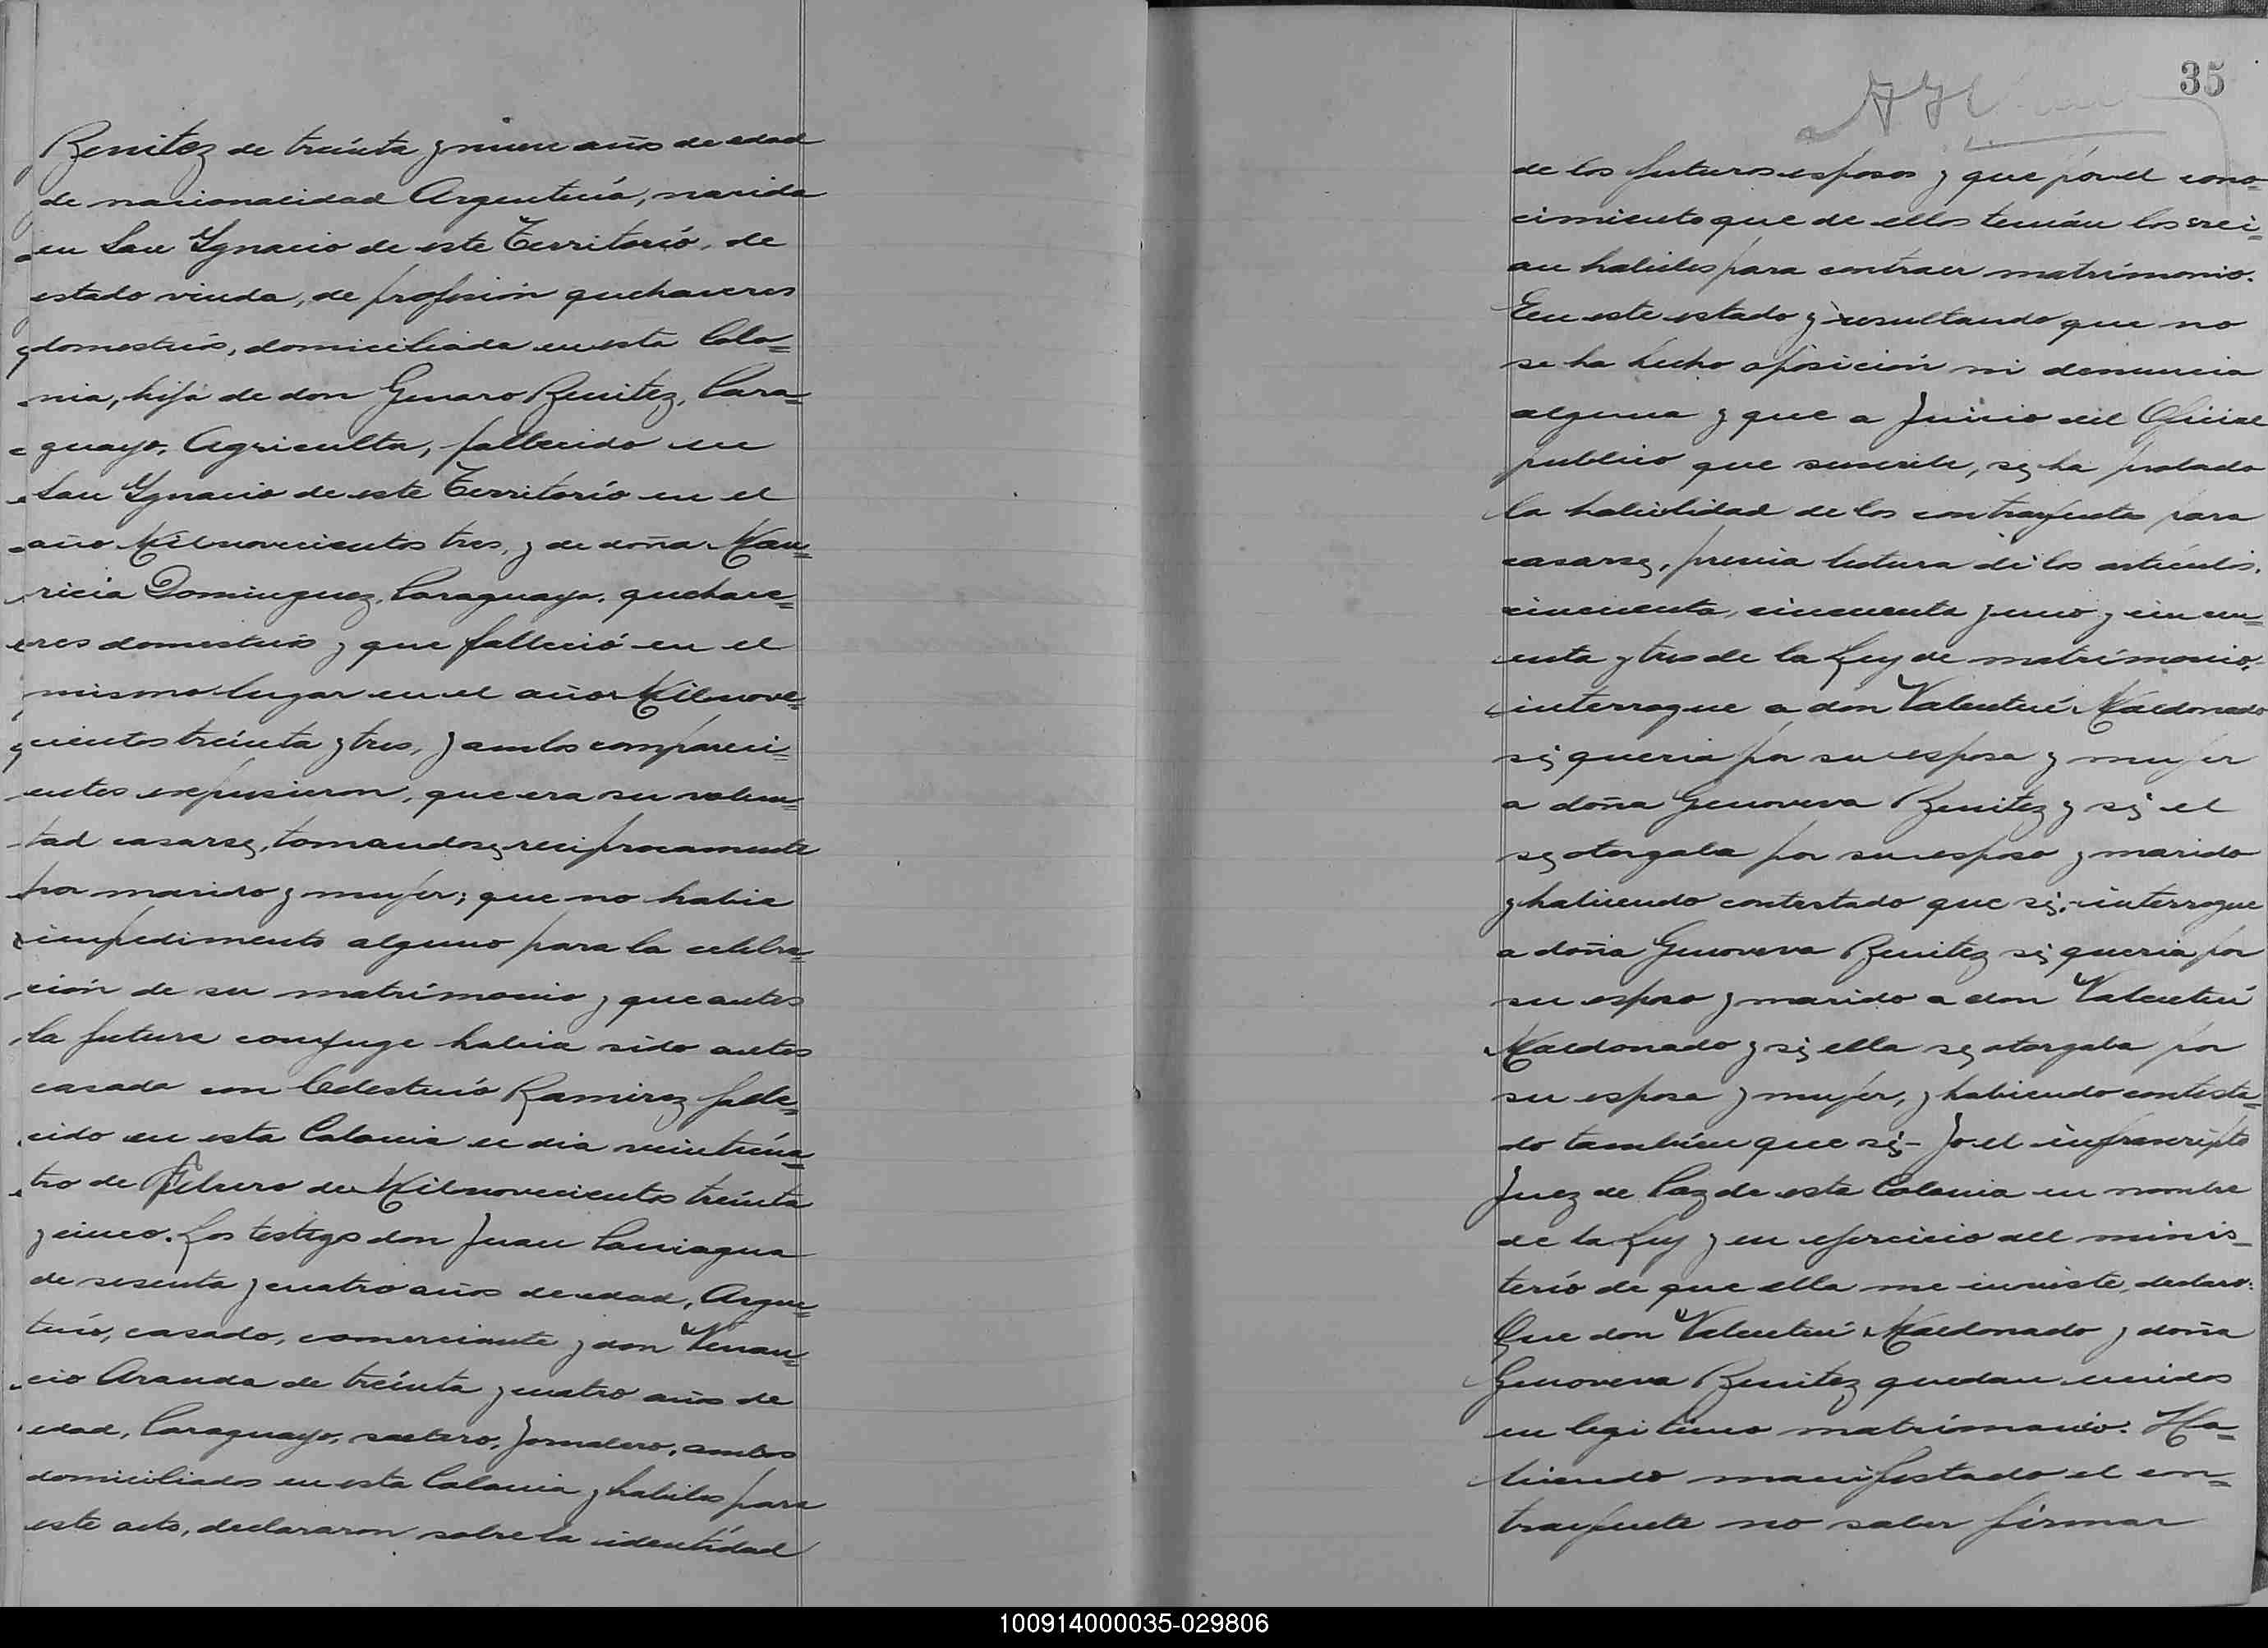 Benitez de treinta y nueve años de edad
de nacionalidad Argentina, nacida
en San Ygnacio de este Territorio, de
estado viuda, de profesión quehaceres
domesticos, domiciliada en esta Colo=
nia, hija de don Genaro Benitez, Para=
guayo, Agriculta, fallecido en
San Ygnacio de este Territorio en el
año Mil novecientos tres, y de doña Mau=
ricia Dominguez, Paraguaya, quehace=
res domesticos y que falleció en el
mismo lugar en el año Mil nove=
cientos treinta y tres, y ambos compareci=
entes expusieron, que era su volun=
tad casarse, tomandose reciprocamente
por marido y mujer; que no habia
impedimento alguno para la celebra=
ción de su matrimonio y que antes
la futura conyuge habia sido antes
casada con Celestino Ramirez falle=
cido en esta Colonia el dia veinticua=
tro de Febrero de Mil novecientos treinta
y cinco. Los testigos don Juan Paniagua
de sesenta y cuatro años de edad, Argen=
tino, casado, comerciante y don Venan=
cio Aranda de treinta y cuatro años de
edad, Paraguayo, soltero, jornalero, ambos
domiciliados en esta Colonia y habiles para
este acto, declararon sobre la identidad
35
de los futuros esposos y que por el cono=
cimiento que de ellos tenian los crei=
an habiles para contraer matrimonio.
En este estado y resultando que no
se ha hecho oposición ni denuncia
alguna y que a juicio del Oficial
publico que suscribe, se ha probado
la habilidad de los contrayentes para
casarse, previa lectura de los articulos,
cincuenta, cincuenta y uno y cincu=
enta y tres de la Ley de matrimonio,
interrogue a don Valentin Maldonado
si queria por su esposa y mujer
a doña Genoveva Benitez y si el
se otorgaba por su esposo y marido
y habiendo contestado que si, interrogue
a doña Genoveva Benitez si queria por
su esposo y marido a don Valentin
Maldonado y si ella se otorgaba por
su esposa y mujer, y habiendo contesta=
do tambien que si - Yo el infrascripto
Juez de Paz de esta Colonia en nombre
de la Ley y en ejercicio del minis-
terio de que ella me inviste, declaro:
Que don Valentin Maldonado y doña
Genoveva Benitez quedan unidos
en legitimo matrimonio. Ha=
biendo manifestado el con=
trayente no saber firmar
100914000035-029806